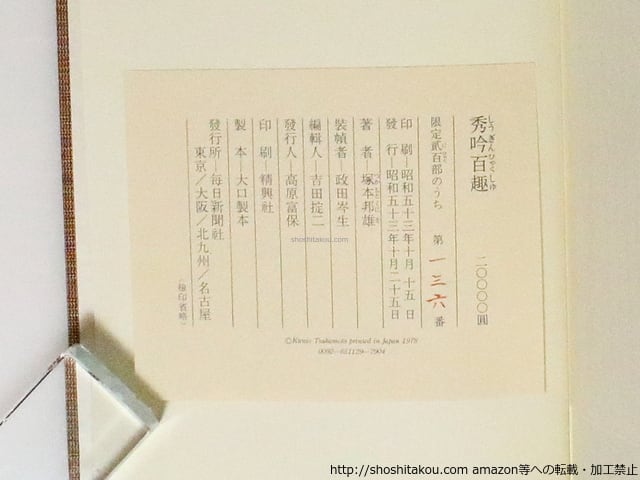 秀吟百趣 二〇〇〇〇圓
しうぎんひゃくしゅ
限定貳百部のうち 第一三六番
印刷―昭和五十三年十月十五日
發行―昭和五十三年十月二十五日
著者―塚本邦雄
裝幀者―政田岑生
編輯人―吉田掟二
發行人―高原富保
印刷―精興社
製本―大口製本
發行所―毎日新聞社
東京／大阪／北九州／名古屋
（檢印省略）
©Kunio Tsukamoto printed in Japan 1978
0092—611129—7904
shoshitakou.com
http://shoshitakou.com amazon等への転載・加工禁止